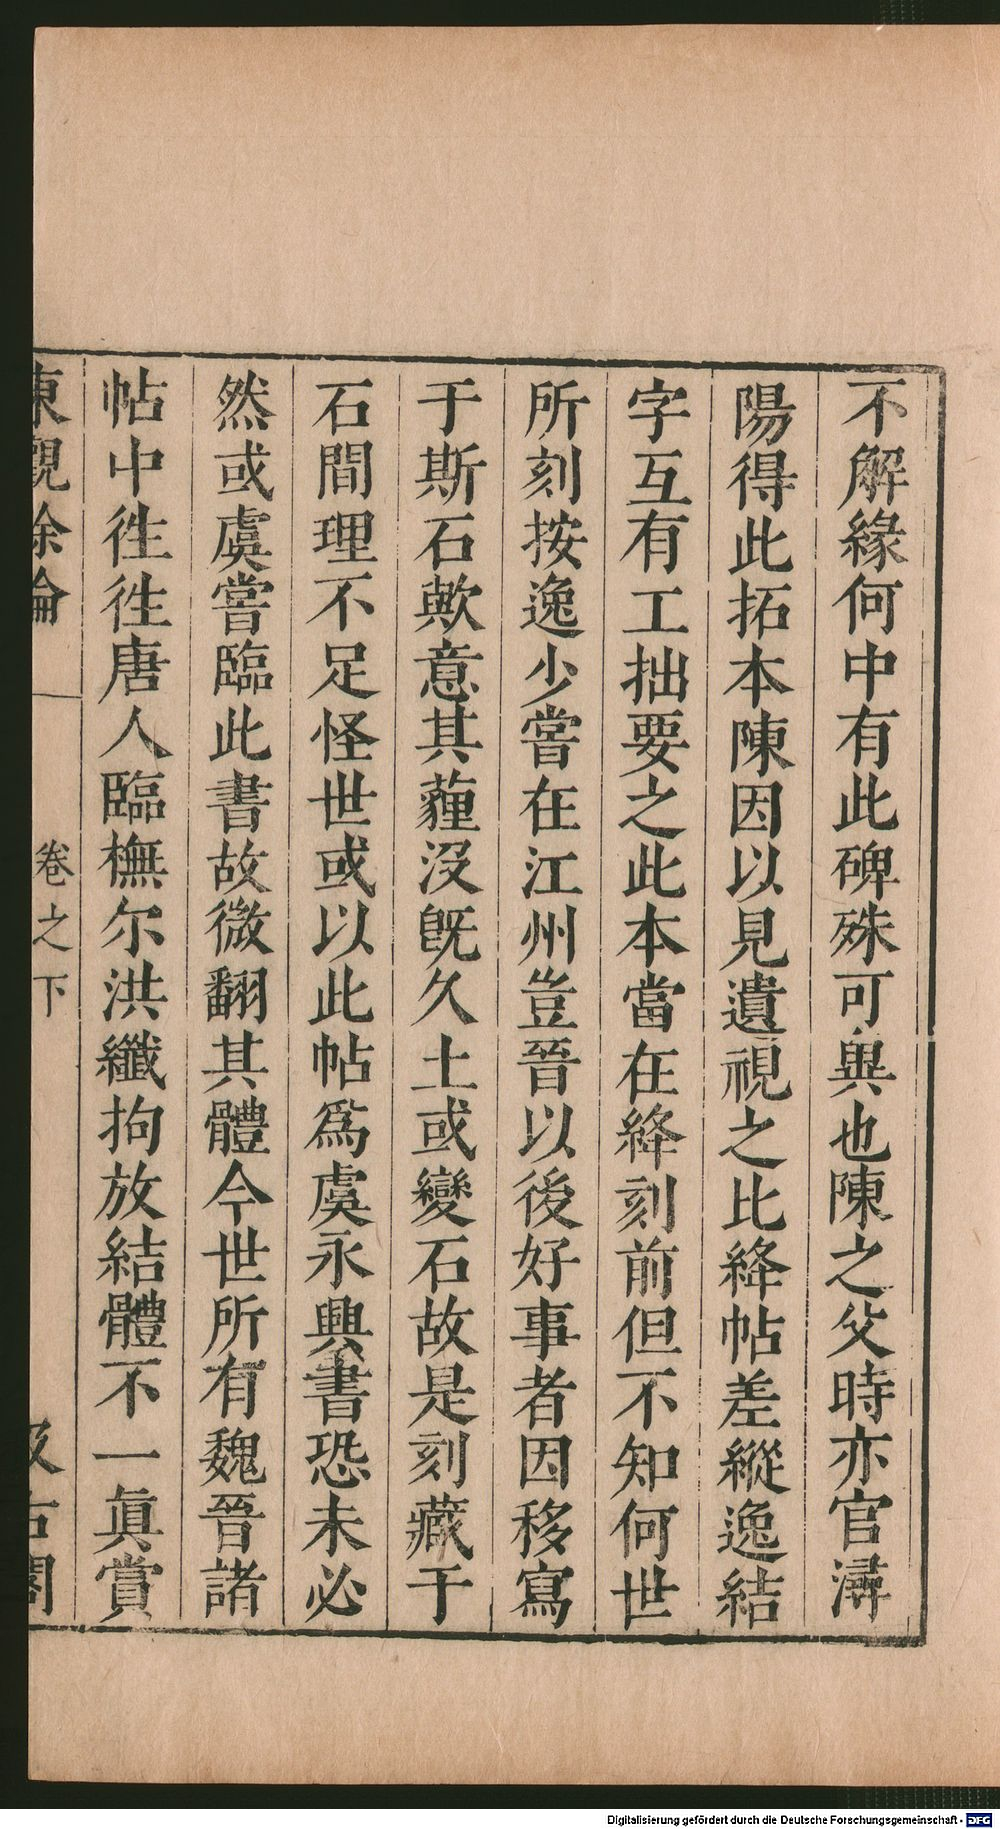 不解緣何中有此碑殊可異也陳之父時亦官潯
陽得此拓本陳因以見遺視之比絳帖差縱逸結
字互有工拙要之此本當在絳刻前但不知何世
所刻按逸少嘗在江州豈晉以後好事者因移寫
于斯石歟意其薶沒旣久土或變石故是刻藏于
石間理不足怪世或以此帖爲虞永興書恐未必
然或虞嘗臨此書故微翻其體今世所有魏晉諸
帖中徃徃唐人臨橅尔洪纖拘放結體不一眞賞
東觀餘論 卷之下 汲古閣
Digitalisierung gefördert durch die Deutsche Forschungsgemeinschaft - DFG